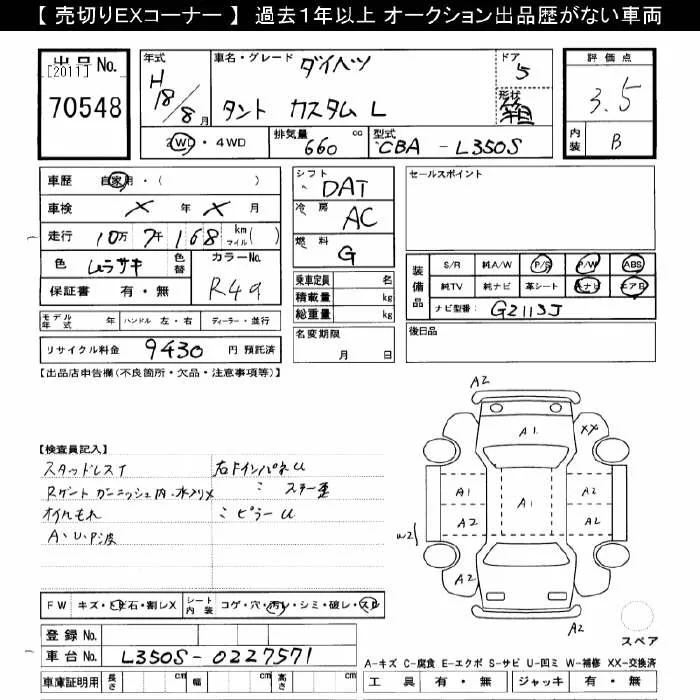 【 売切りEXコーナー 】 過去１年以上 オークション出品歴がない車両
出品 No.
[2011]
70548
年式
H18/8月
車名・グレード
ダイハツ
タント カスタム L
ドア
5
形状
箱
評価点
3.5
内装
B
2WD・4WD
排気量 660 cc
型式 CBA - L350S
車歴 自家用・( )
車検 × 年 × 月
走行 10万 7千 168 km マイル( )
色 ムラサキ 色替 カラーNo. R49
保証書 有・無
モデル年式 年 ハンドル 左・右 ディーラー・並行
リサイクル料金 9430 円 預託済
シフト DAT
冷房 AC
燃料 G
乗車定員 名
積載量 kg
総重量 kg
名変期限
月 日
セールスポイント
装備品
S/R 純A/W P/S P/W ABS
純TV 純ナビ 革シート Aナビ エアB
ナビ型番: G2113J
後日品
【出品店申告欄(不良箇所・欠品・注意事項等)】
【検査員記入】
スタッドレスT
Rゲート ガーニッシュ内・水入りメ
オイルもれ
A、U、P波
右Fインパネ U
〃 ステー歪
〃 ピラー U
FW キズ・飛石・割レX シート内装 コゲ・穴・汚レ・シミ・破レ・スレ
登録 No.
車台 No. L350S-0227571
車庫証明用 長さ cm 幅 cm 高さ cm
A2
A1
XX
A1
A1
A2
A2
A2
W2
A2
A2
スペア
A-キズ C-腐食 E-エクボ S-サビ U-凹ミ W-補修 XX-交換済
工具 有・無 ジャッキ 有・無